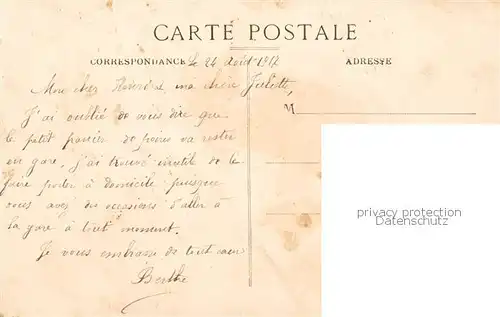 CARTE POSTALE
CORRESPONDANCE
ADRESSE
Le 24 Août 1917
Mon cher ma chère Juliette,
M
J'ai oublié de vous dire que
le petit panier de poires va rester
en gare, j'ai trouvé inutil de le
faire porter à domicile puisque
vous avez des occasions d'aller à
la gare à tout moment.
Je vous embrasse de tout cœur
Berthe
privacy protection
Datenschutz